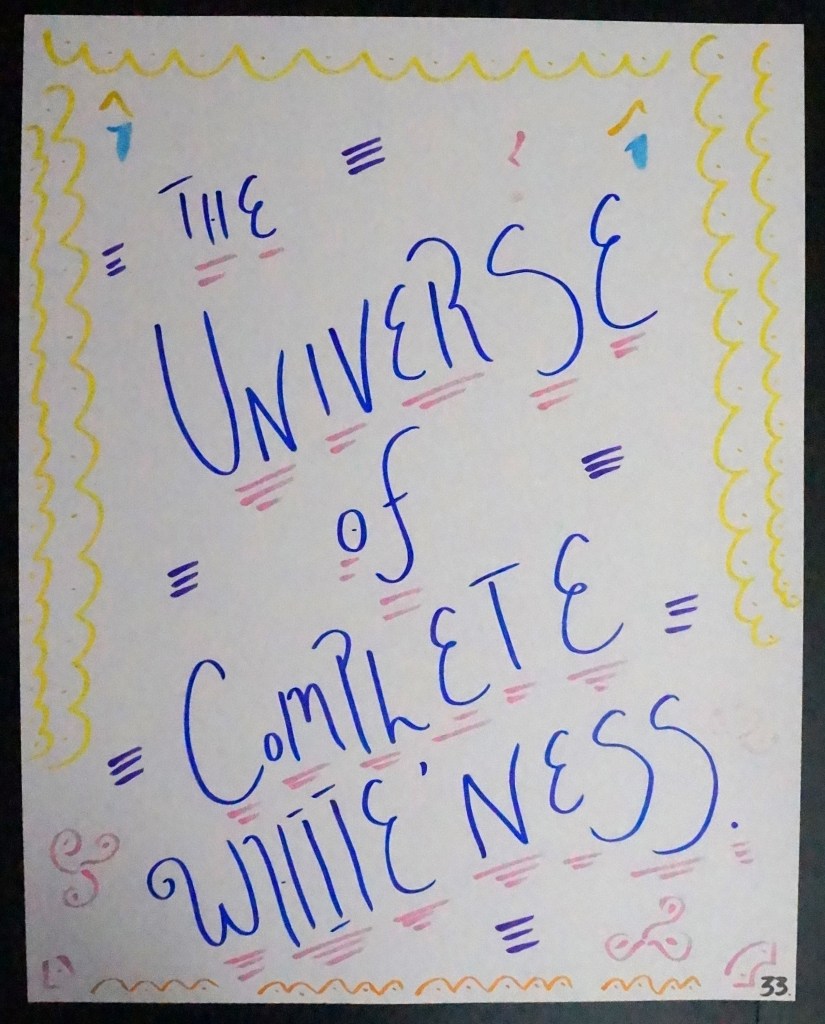 THE
UNIVERSE
of
COMPLETE
WHITE'NESS.
33.